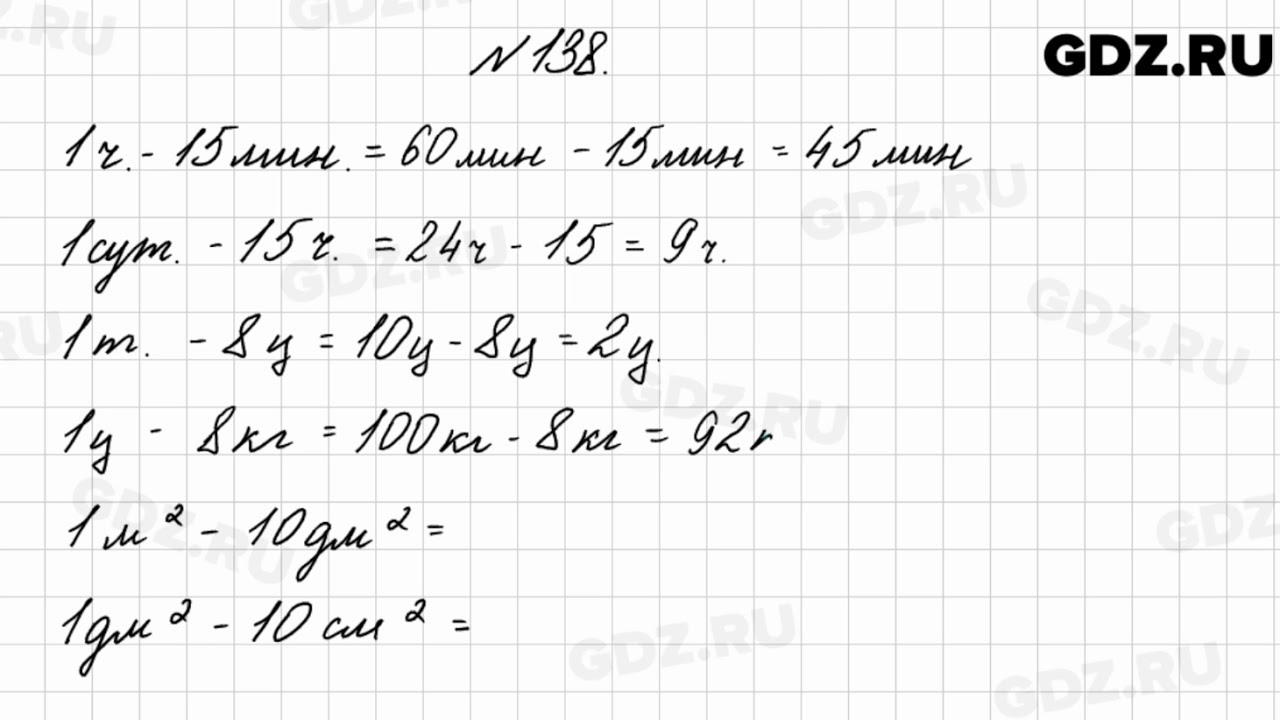 № 138.
GDZ.RU
1 ч. - 15 мин. = 60 мин - 15 мин = 45 мин
1 сут. - 15 ч. = 24 ч - 15 = 9 ч.
1 т. - 8 ц = 10 ц - 8 ц = 2 ц.
1 ц - 8 кг = 100 кг - 8 кг = 92 г
1 м² - 10 дм² =
1 дм² - 10 см² =